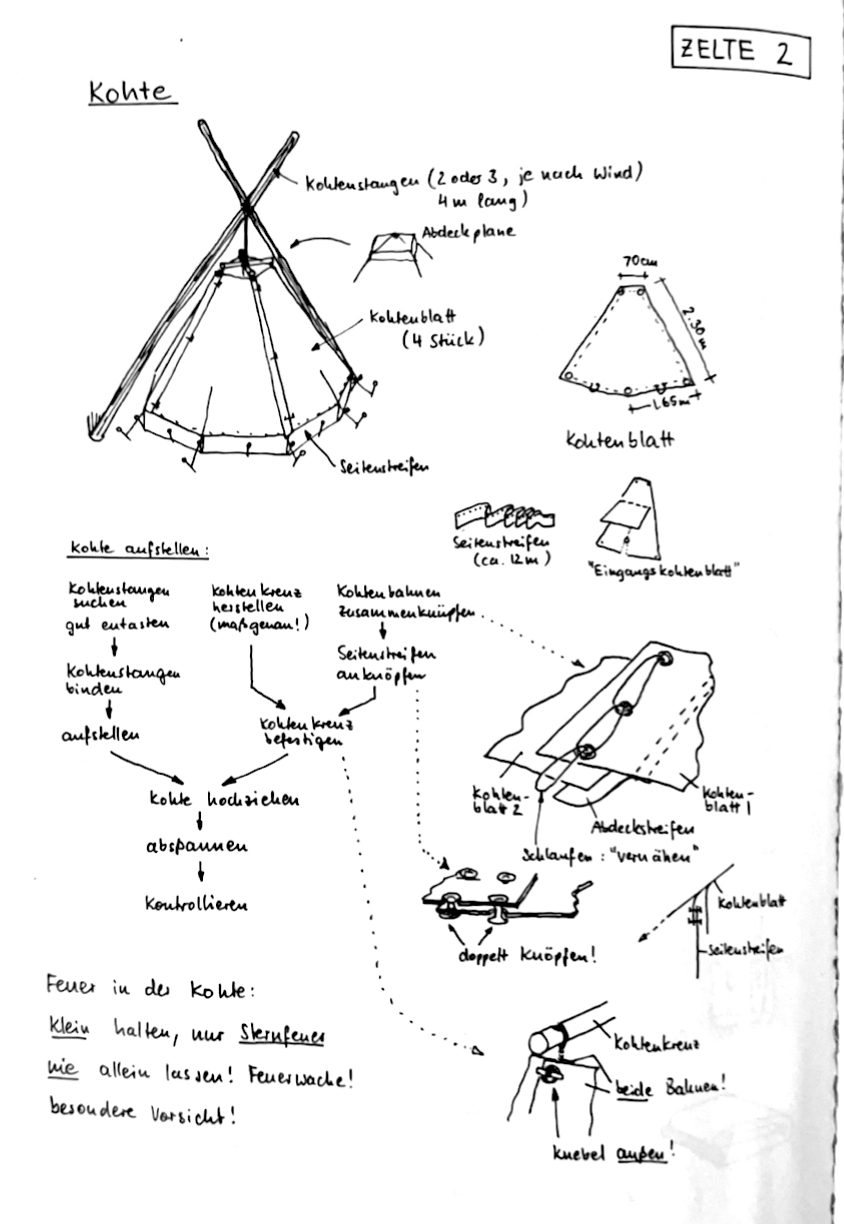 ZELTE 2
Kohte
Kohtenstangen (2 oder 3, je nach Wind)
4m lang)
Abdeckplane
Kohtenblatt
(4 Stück)
Seitenstreifen
70cm
2.30m
1,65m
Kohtenblatt
Seitenstreifen
(ca. 12m)
"Eingangskohtenblatt"
Kohte aufstellen:
Kohtenstangen
suchen
gut entasten
Kohtenstangen
binden
aufstellen
Kohtenkreuz
herstellen
(maßgenau!)
Kohtenbahnen
zusammenknüpfen
Seitenstreifen
anknöpfen
Kohtenkreuz
befestigen
Kohte hochziehen
abspannen
kontrollieren
Kohten-
blatt 2
Kohten-
blatt 1
Abdeckstreifen
Schlaufen: "vernähen"
doppelt knöpfen!
Kohtenblatt
Seitenstreifen
Kohtenkreuz
beide Bahnen!
Knebel außen!
Feuer in der Kohte:
Klein halten, nur Sternfeuer
nie allein lassen! Feuerwache!
besondere Vorsicht!